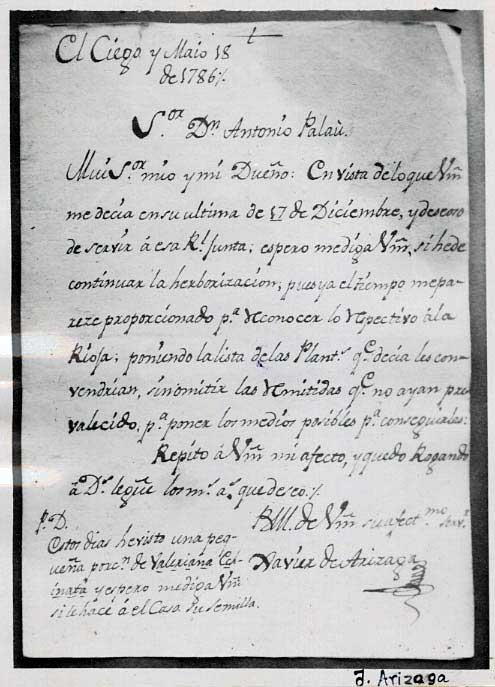 El Ciego y Maio 18
de 1786%.
S.or Dn Antonio Palaù.
Mui S.or mio y mi Dueño: En vista de lo que Vm̃
me decia en su ultima de 17 de Diciembre, y deseoso
de servir á esa Rl. Junta; espero me diga Vm̃, si he de
continuar la herborizacion; pues ya el tiempo me pa-
reze proporcionado pa. Reconocer lo Respectivo á la
Rioja; poniendo la lista de las Plants. qe. decia les con-
vendrian, sin omitir las Remitidas qe. no ayan pre-
valecido, pa. poner los medios posibles pa. conseguirlas:
Repito á Vm̃ mi afecto, y quedo Rogando
á Ds. le gue. los ms. as. que deseo%.
B.l.M. de Vm̃ su afectmo. serv.r
Xavier de Arizaga
P.D.
Estos dias he visto una peq-
ueña porcn. de Valeriana
y espero me diga Vm̃
si le hace á el Caso su Semilla.
J. Arizaga